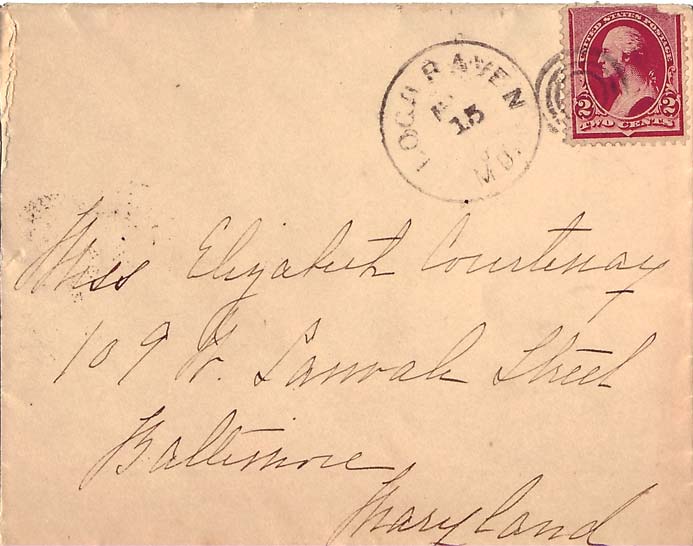 LOCH RAVEN
15
MD.
UNITED STATES POSTAGE
2 2
TWO CENTS
Miss Elizabeth Courtenay
109 W. Lanvale Street
Baltimore
Maryland